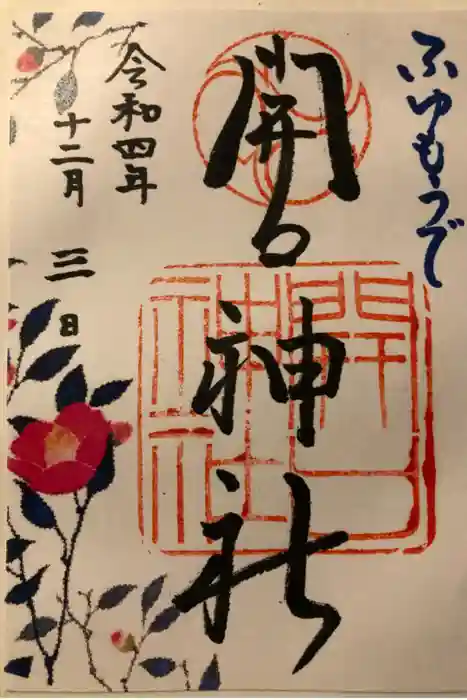 ふゆもうで
開口神社
開口神社
令和四年
十二月 三 日